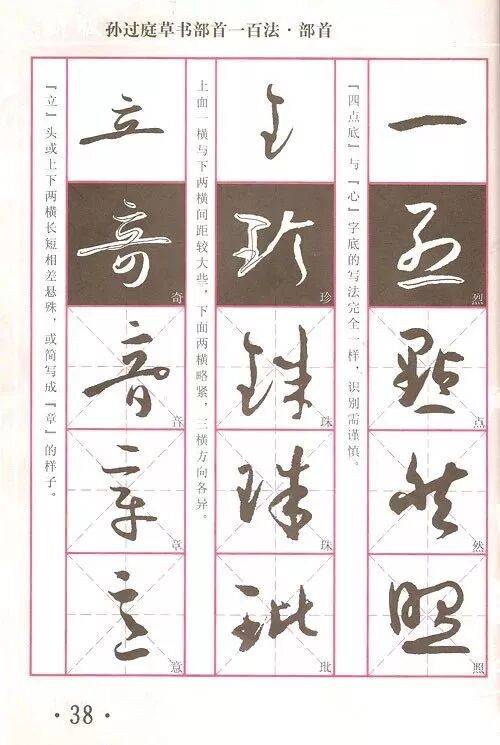 孙过庭草书部首一百法·部首
『四点底』与『心』字底的写法完全一样，识别需谨慎。
烈
点
然
照
上面一横与下两横间距较大些，下面两横略紧，三横方向各异。
珍
珠
珠
玭
『立』头或上下两横长短相差悬殊，或简写成『章』的样子。
奇
音
章
意
·38·